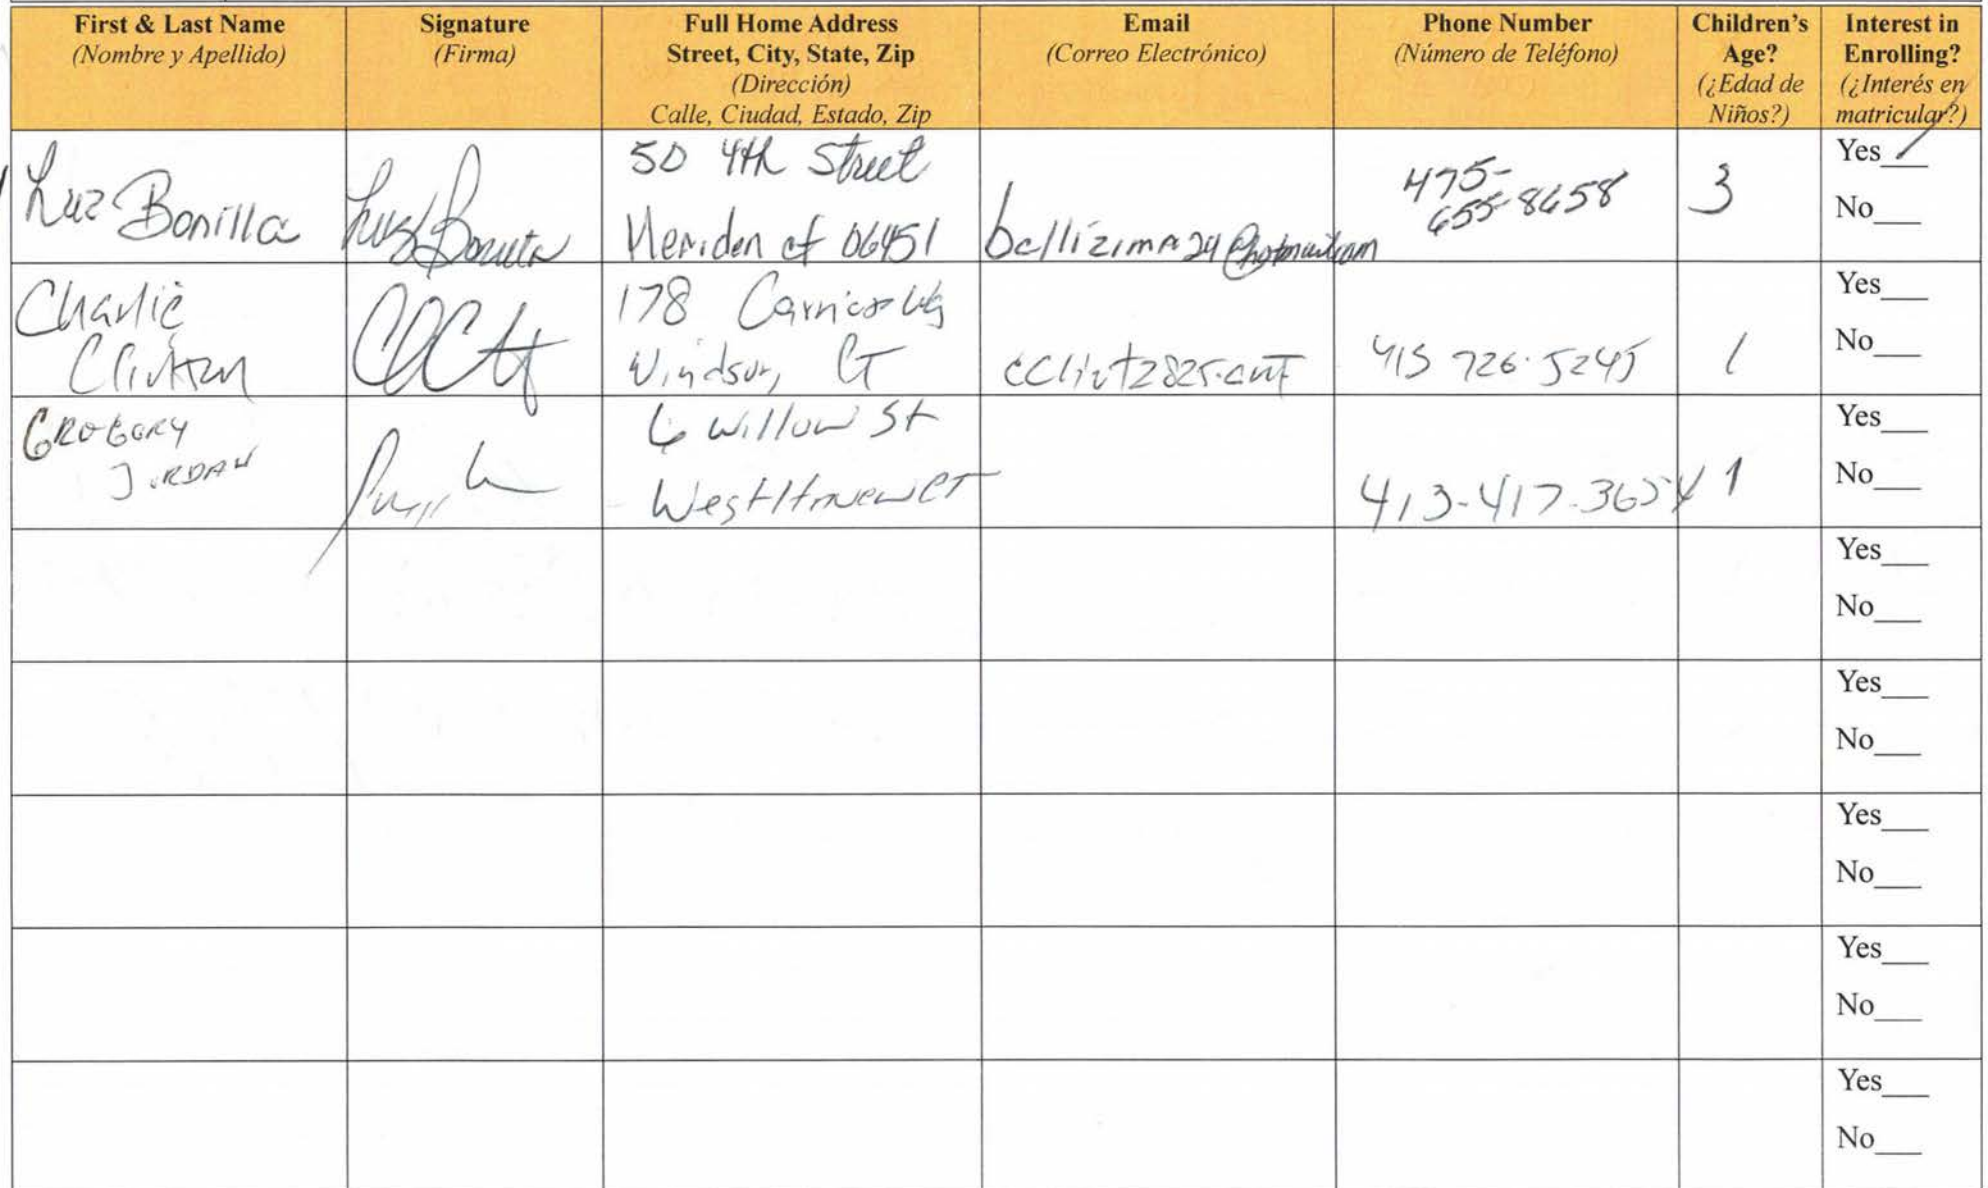 First & Last Name
(Nombre y Apellido)
Signature
(Firma)
Full Home Address
Street, City, State, Zip
(Dirección)
Calle, Ciudad, Estado, Zip
Email
(Correo Electrónico)
Phone Number
(Número de Teléfono)
Children's
Age?
(¿Edad de
Niños?)
Interest in
Enrolling?
(¿Interés en
matricular?)
Luz Bonilla
Luz Bonilla
50 4th Street
Meriden ct 06451
bellizima24@hotmail.com
475-
655-8658
3
Yes
No
Charlie
Clinton
178
Windsor, CT
726-5245
1
Yes
No
GREGORY
JORDAN
6 Willow St
West Haven CT
413-417-3654
1
Yes
No
Yes
No
Yes
No
Yes
No
Yes
No
Yes
No